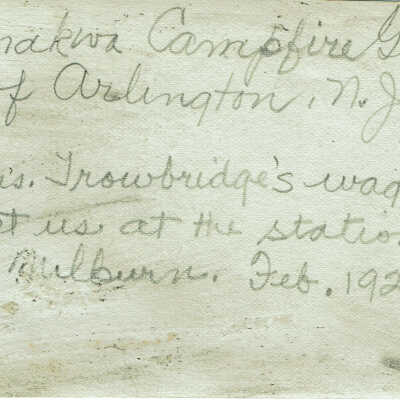 nakwa Campfire G
f Arlington, N.J
s. Trowbridge's wag
et us at the statio
Milburn. Feb. 192